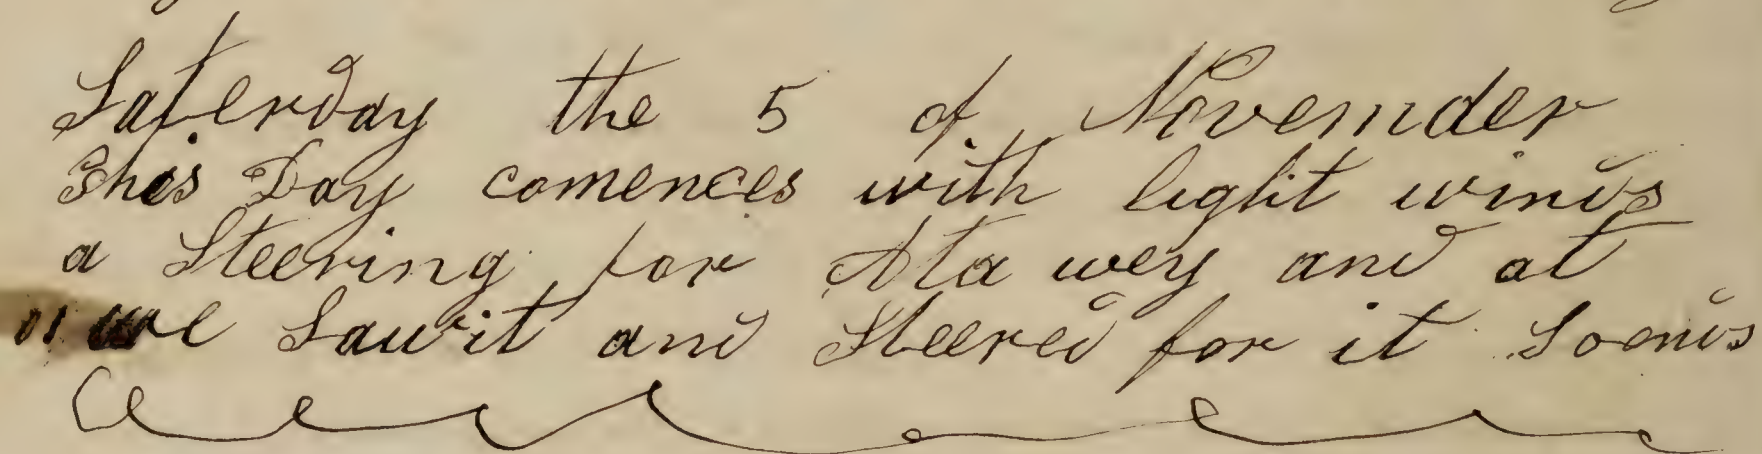 Saterday the 5 of November
This Day comences with light winds
a Steering for Ata wey and at
11 we Saw it and Steered for it So ends